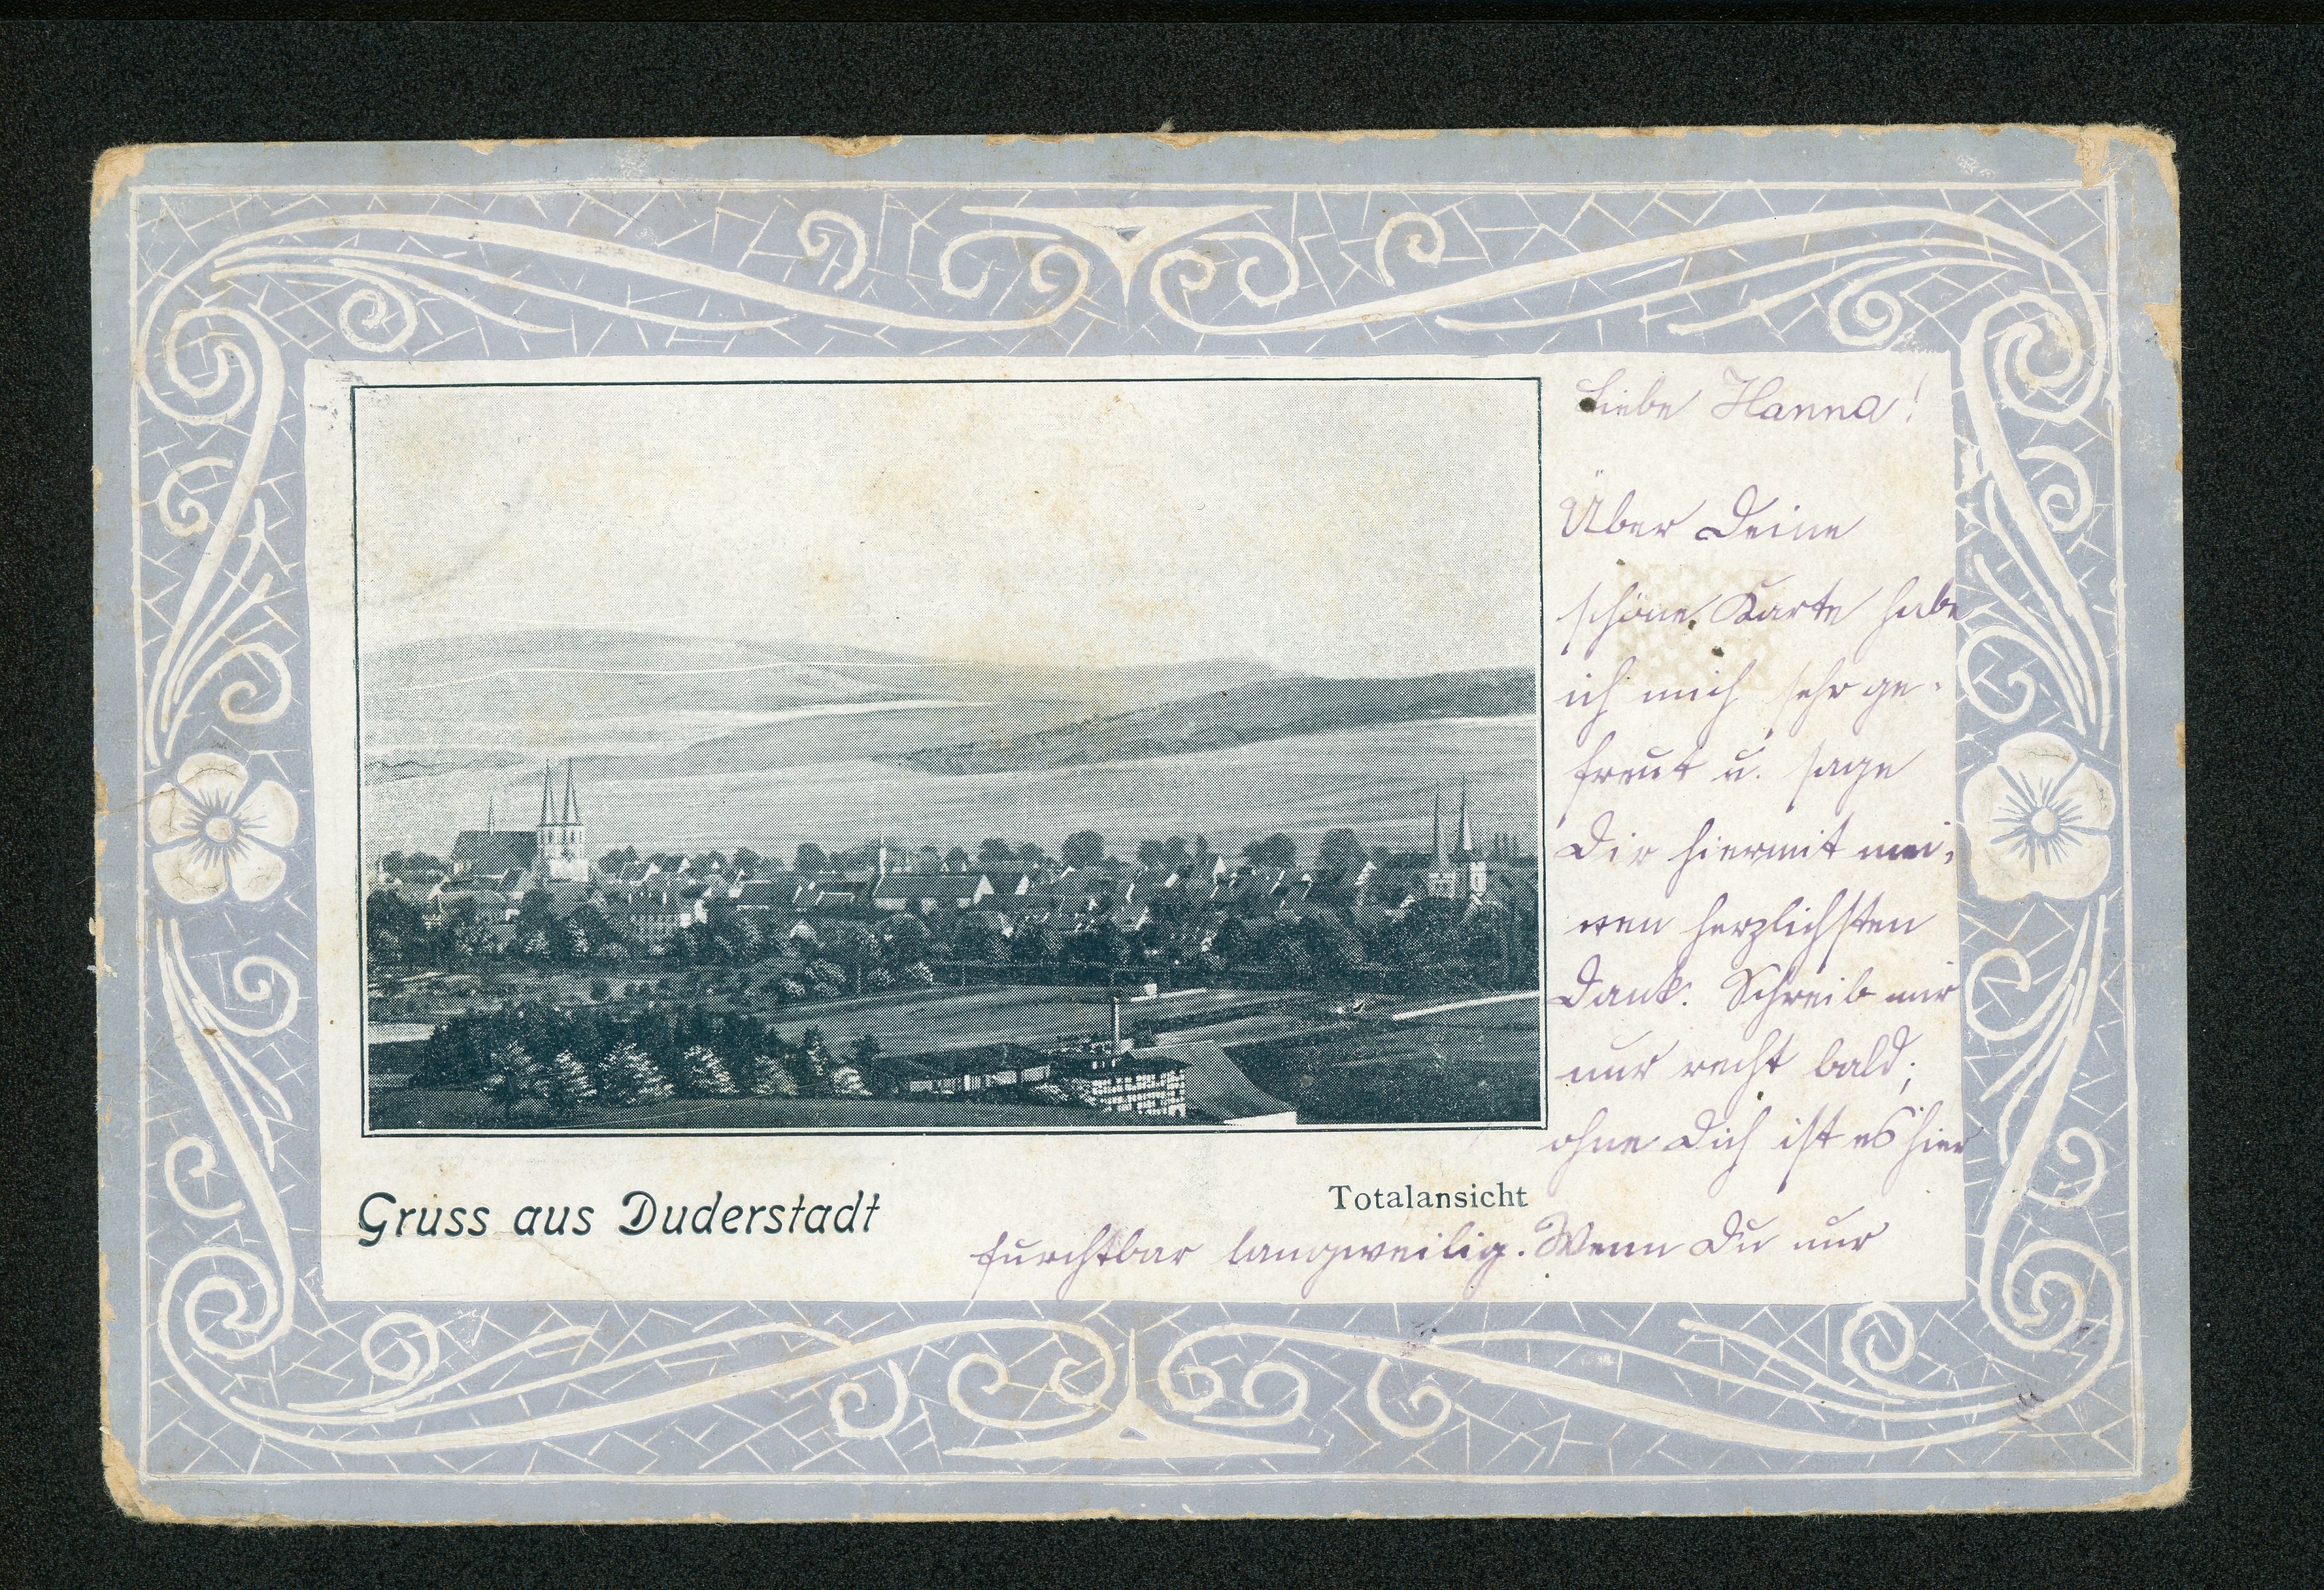 Liebe Hanna!
Über Deine
schöne Karte habe
ich mich sehr ge-
freut u. sage
Dir hiermit mei-
nen herzlichsten
Dank. Schreib mir
nur recht bald;
ohne Dich ist es hier
Gruss aus Duderstadt
Totalansicht
furchtbar langweilig. Wenn Du nur